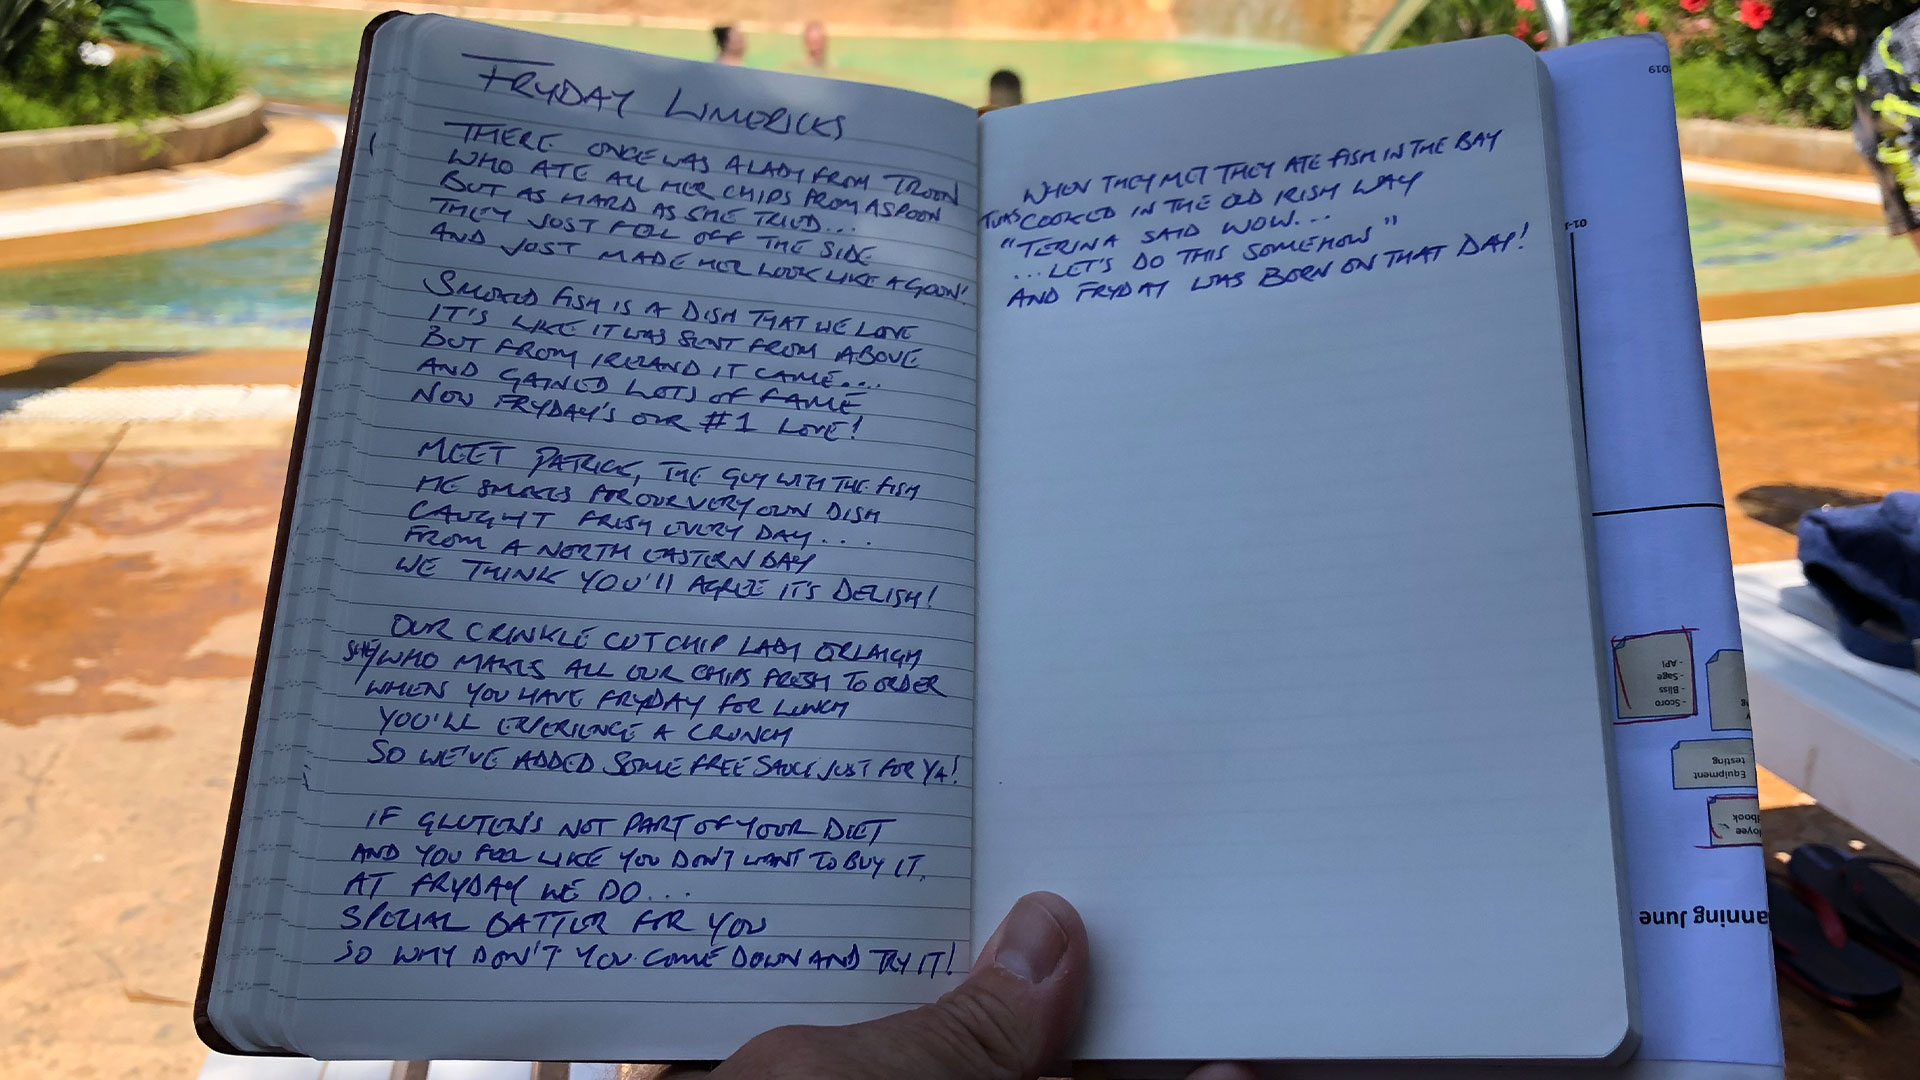 FRYDAY LIMERICKS
THERE ONCE WAS A LADY FROM TROON
WHO ATE ALL HER CHIPS FROM A SPOON
BUT AS HARD AS SHE TRIED...
THEY JUST FELL OFF THE SIDE
AND JUST MADE HER LOOK LIKE A GOON!
SMOKED FISH IS A DISH THAT WE LOVE
IT'S LIKE IT WAS SENT FROM ABOVE
BUT FROM IRELAND IT CAME....
AND GAINED LOTS OF FAME
NOW FRYDAY'S OUR #1 LOVE!
MEET PATRICK, THE GUY WITH THE FISH
HE SMOKES FOR OUR VERY OWN DISH
CAUGHT FRESH EVERY DAY....
FROM A NORTH EASTERN BAY
WE THINK YOU'll AGREE IT'S DELISH!
OUR CRINKLE CUT CHIP LADY ORLAIGH
SHE/WHO MAKES ALL OUR CHIPS FRESH TO ORDER
WHEN YOU HAVE FRYDAY FOR LUNCH
YOU'LL EXPERIENCE A CRUNCH
SO WE'VE ADDED SOME FREE SAUCE JUST FOR YA!
IF GLUTEN'S NOT PART OF YOUR DIET
AND YOU FEEL LIKE YOU DON'T WANT TO BUY IT.
AT FRYDAY WE DO...
SPECIAL BATTER FOR YOU
SO WHY DON'T YOU COME DOWN AND TRY IT!
WHEN THEY MET THEY ATE FISH IN THE BAY
TWAS COOKED IN THE OLD IRISH WAY
"TERINA SAID WOW...
...LET'S DO THIS SOMEHOW"
AND FRYDAY WAS BORN ON THAT DAY!
2019
01-J
- Scoro
- Bliss
- Sage
- API
Equipment
testing
anning June